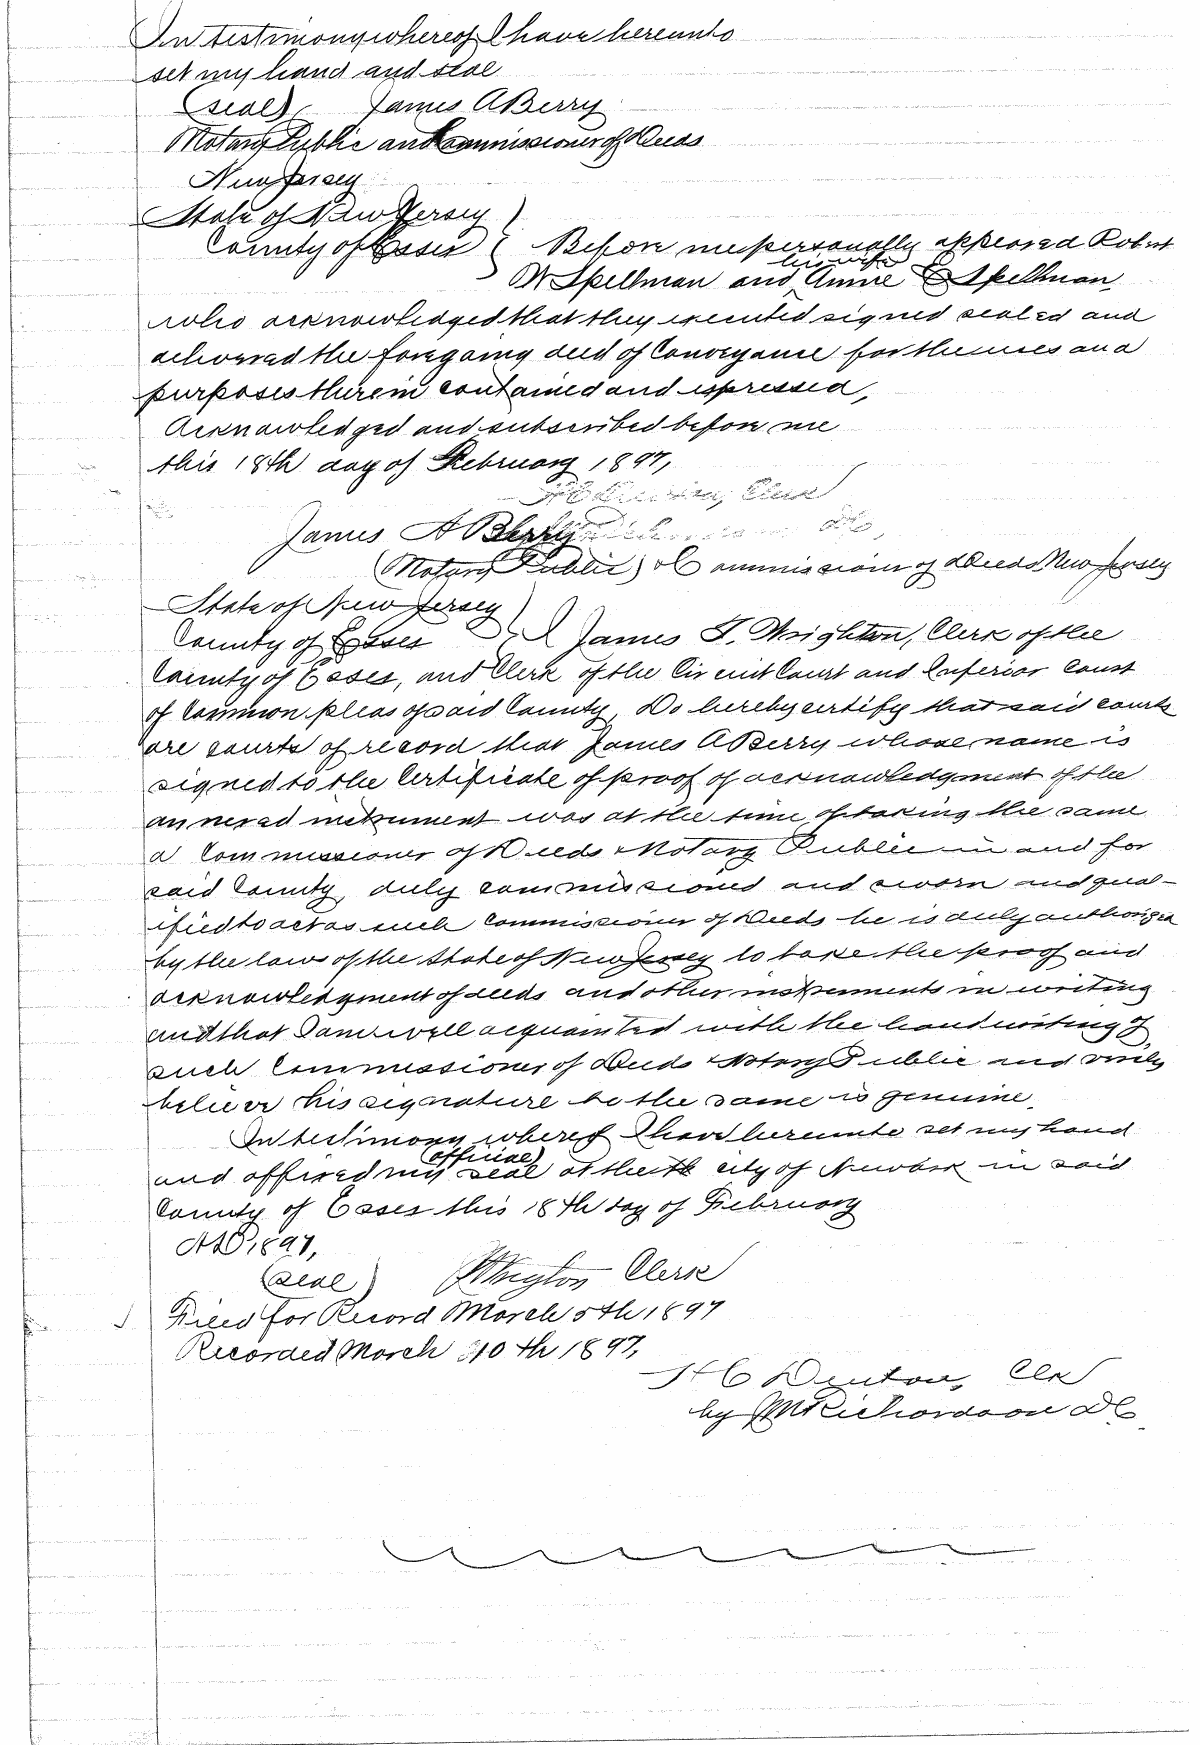 In testimony whereof I have hereunto
set my hand and seal
(seal) James A Berry
Notary Public and Commissioner of Deeds
New Jersey
State of New Jersey )
County of Essex } Before me personally appeared Robert
his wife
W Spellman and ^ Annie E Spellman
who acknowledged that they executed signed sealed and
delivered the foregoing deed of Conveyance for the uses and
purposes therein contained and expressed,
Acknowledged and subscribed before me
this 18th day of February 1897,
Clerk
James A Berry
(Notary Public) & Commissioner of Deeds New Jersey
State of New Jersey )
County of Essex I James T. Wrighton, Clerk of the
County of Essex, and Clerk of the Circuit Court and Inferior Court
of Common pleas of said County, Do hereby certify that said courts
are courts of record that James A Berry whose name is
signed to the Certificate of proof of acknowledgment of the
annexed instrument was at the time of taking the same
a Commissioner of Deeds & Notary Public in and for
said County, duly commissioned and sworn and qual-
ified to act as such Commissioner of Deeds he is duly authorized
by the laws of the State of New Jersey to take the proof and
acknowledgment of deeds and other instruments in writing
and that I am well acquainted with the handwriting of
such Commissioner of Deeds & Notary Public and verily
believe his signature to the same is genuine,
In testimony whereof I have hereunto set my hand
official
and affixed my seal at the city of Newark in said
County of Essex this 18th day of February
AD 1897,
(seal) Wrigton Clerk
Filed for Record March 5th 1897
Recorded March 10th 1897,
H C Denton, Clk
by M Richardson DC